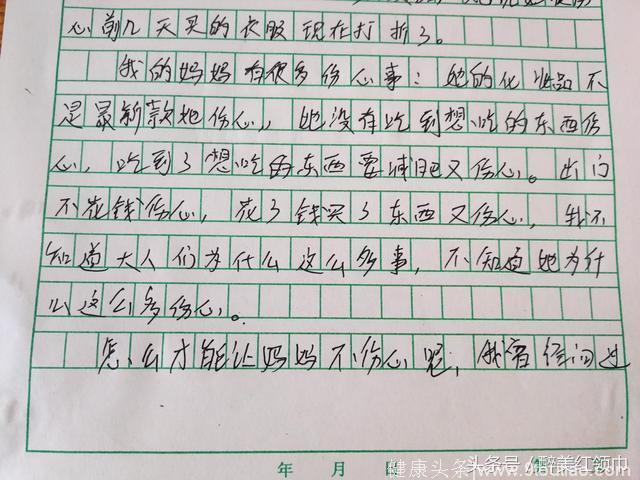 心前几天买的衣服现在打折了。
我的妈妈有很多伤心事：她的化妆品不
是最新款她伤心，她没有吃到想吃的东西伤
心，吃到了想吃的东西要减肥又伤心。出门
不花钱伤心，花了钱买了东西又伤心，我不
知道大人们为什么这么多事，不知道她为什
么这么多伤心。
怎么才能让妈妈不伤心呢，我曾经问过
年 月 日
健康头条
头条号/醉美红领巾